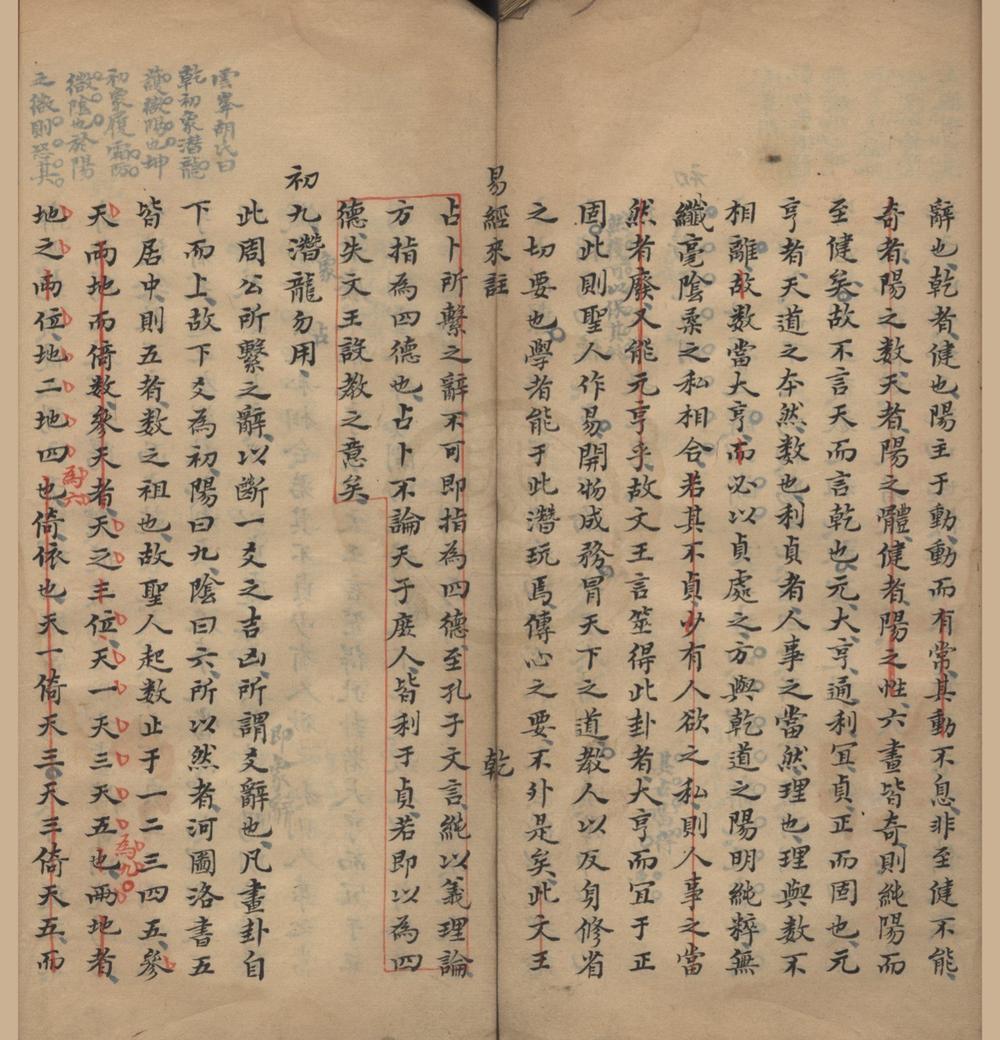 辭也乾者健也陽主于動動而有常其動不息非至健不能
奇者陽之數天者陽之體健者陽之性六畫皆奇則純陽而
至健矣故不言天而言乾也元大亨通利宜貞正而固也元
亨者天道之本然數也利貞者人事之當然理也理與數不
相離故數當大亨而必以貞處之方與乾道之陽明純粹無
纖毫陰柔之私相合若其不貞少有人欲之私則人事之當
然者廢又能元亨乎故文王言筮得此卦者大亨而宜于正
固此則聖人作易開物成務冒天下之道教人以反身修省
之切要也學者能于此潛玩焉傳心之要不外是矣此文王
易經來註 乾
占卜所繫之辭不可即指為四德至孔子文言純以義理論
方指為四德也占卜不論天子庶人皆利于貞若即以為四
德失文王設教之意矣
初九潛龍勿用
此周公所繫之辭以斷一爻之吉凶所謂爻辭也凡畫卦自
下而上故下爻為初陽曰九陰曰六所以然者河圖洛書五
皆居中則五者數之祖也故聖人起數止于一二三四五參
天兩地而倚數參天者天之三位天一天三天五也兩地者
為九
地之兩位地二地四也倚依也天一倚天三天三倚天五而
為六
雲峯胡氏曰
乾初象潛龍
護微陽也坤
初象履霜防
微陰也於陽
之微則恐其